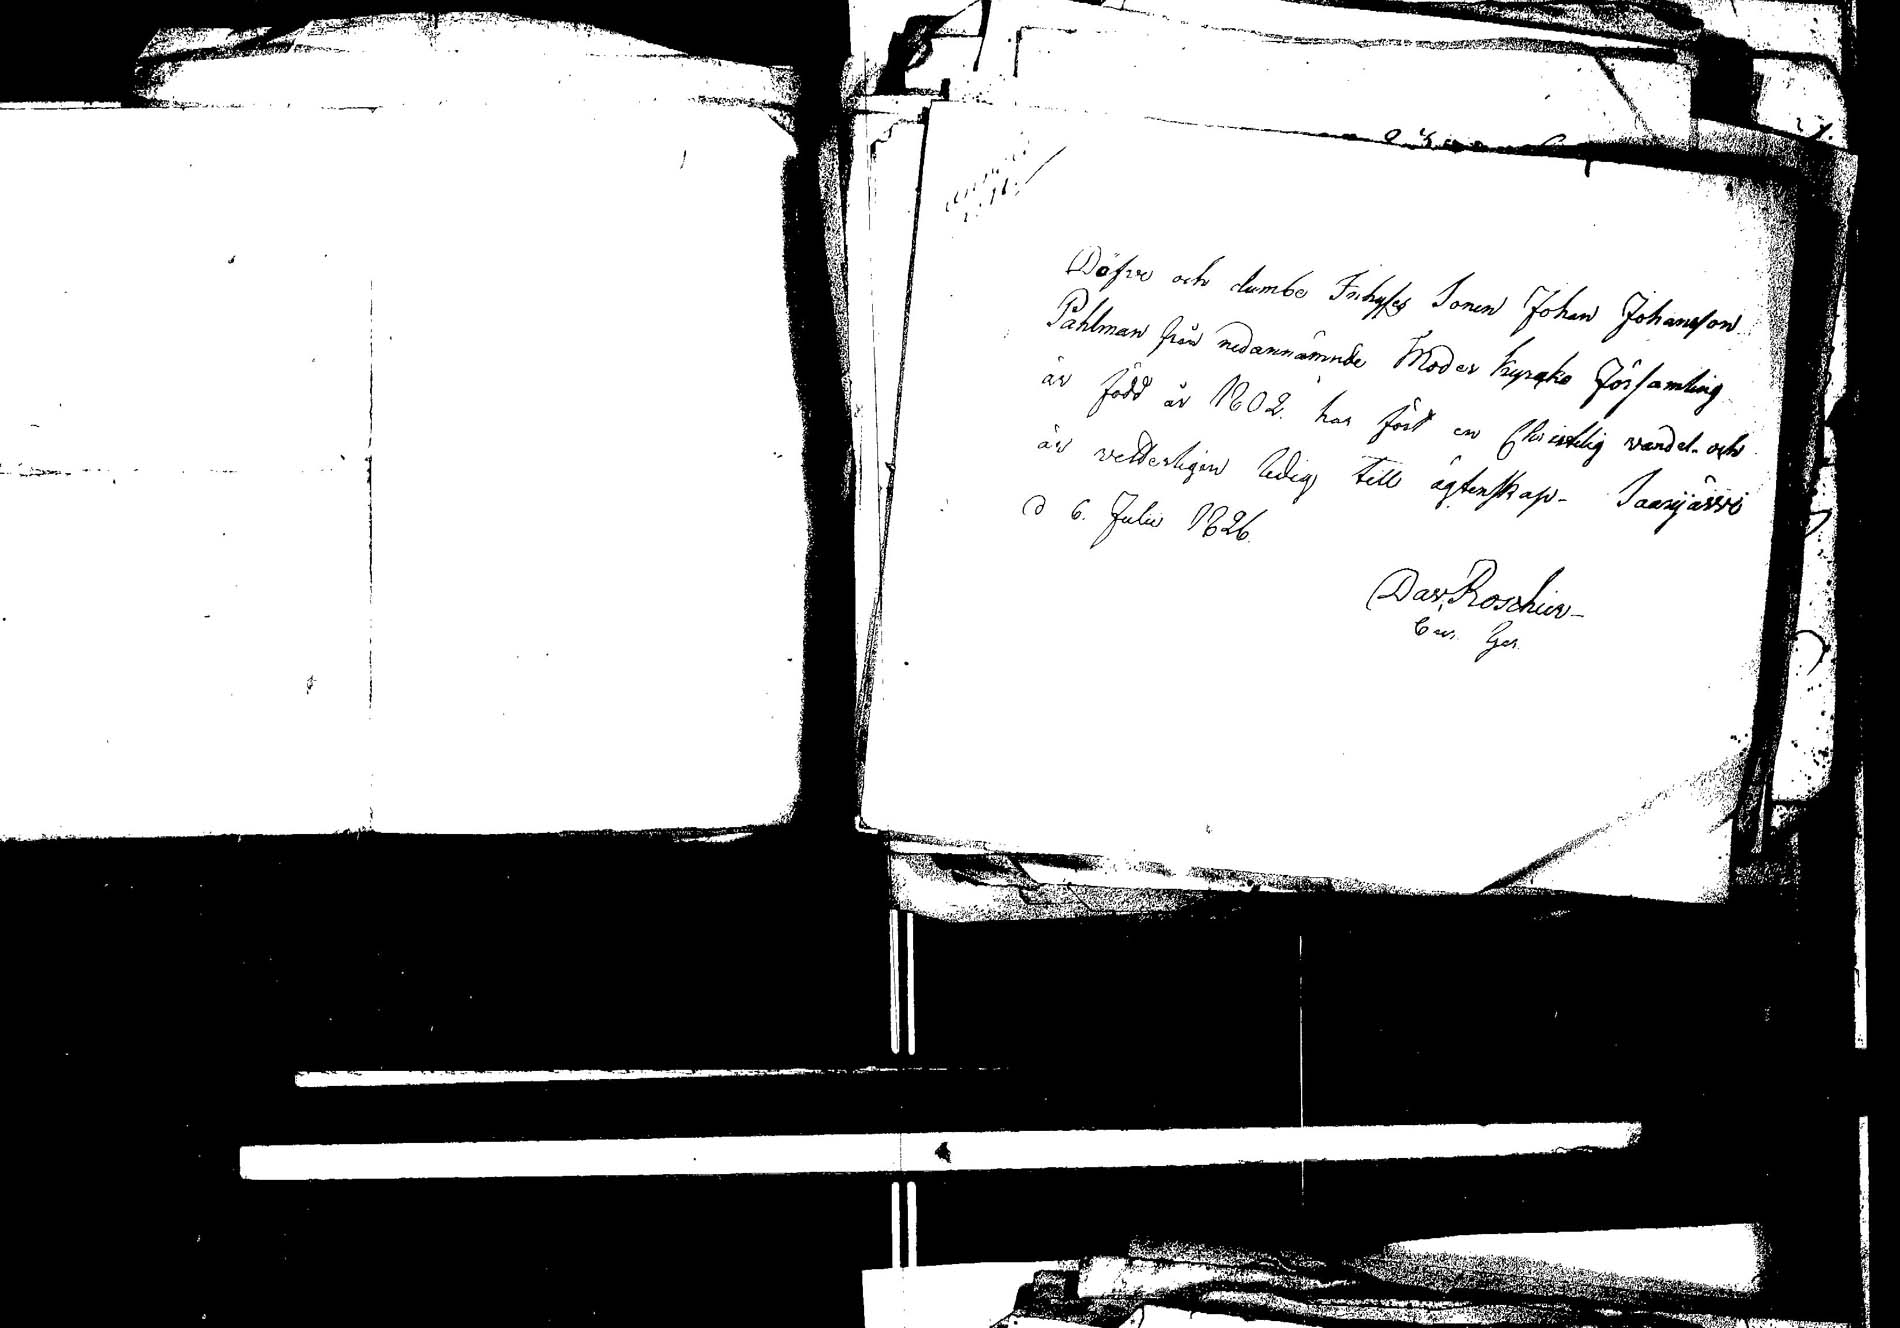 Döfve och dumbe Inhyses Sonen Johan Johansson
Påhlman från nedannämnde Moder kyrcko Församling
är född år 1802. har fört en Christelig vandel och
är vetterligen ledig till ägtenskap - Saarijärvi
d 6. Julii 1826.
Dav. Roschier